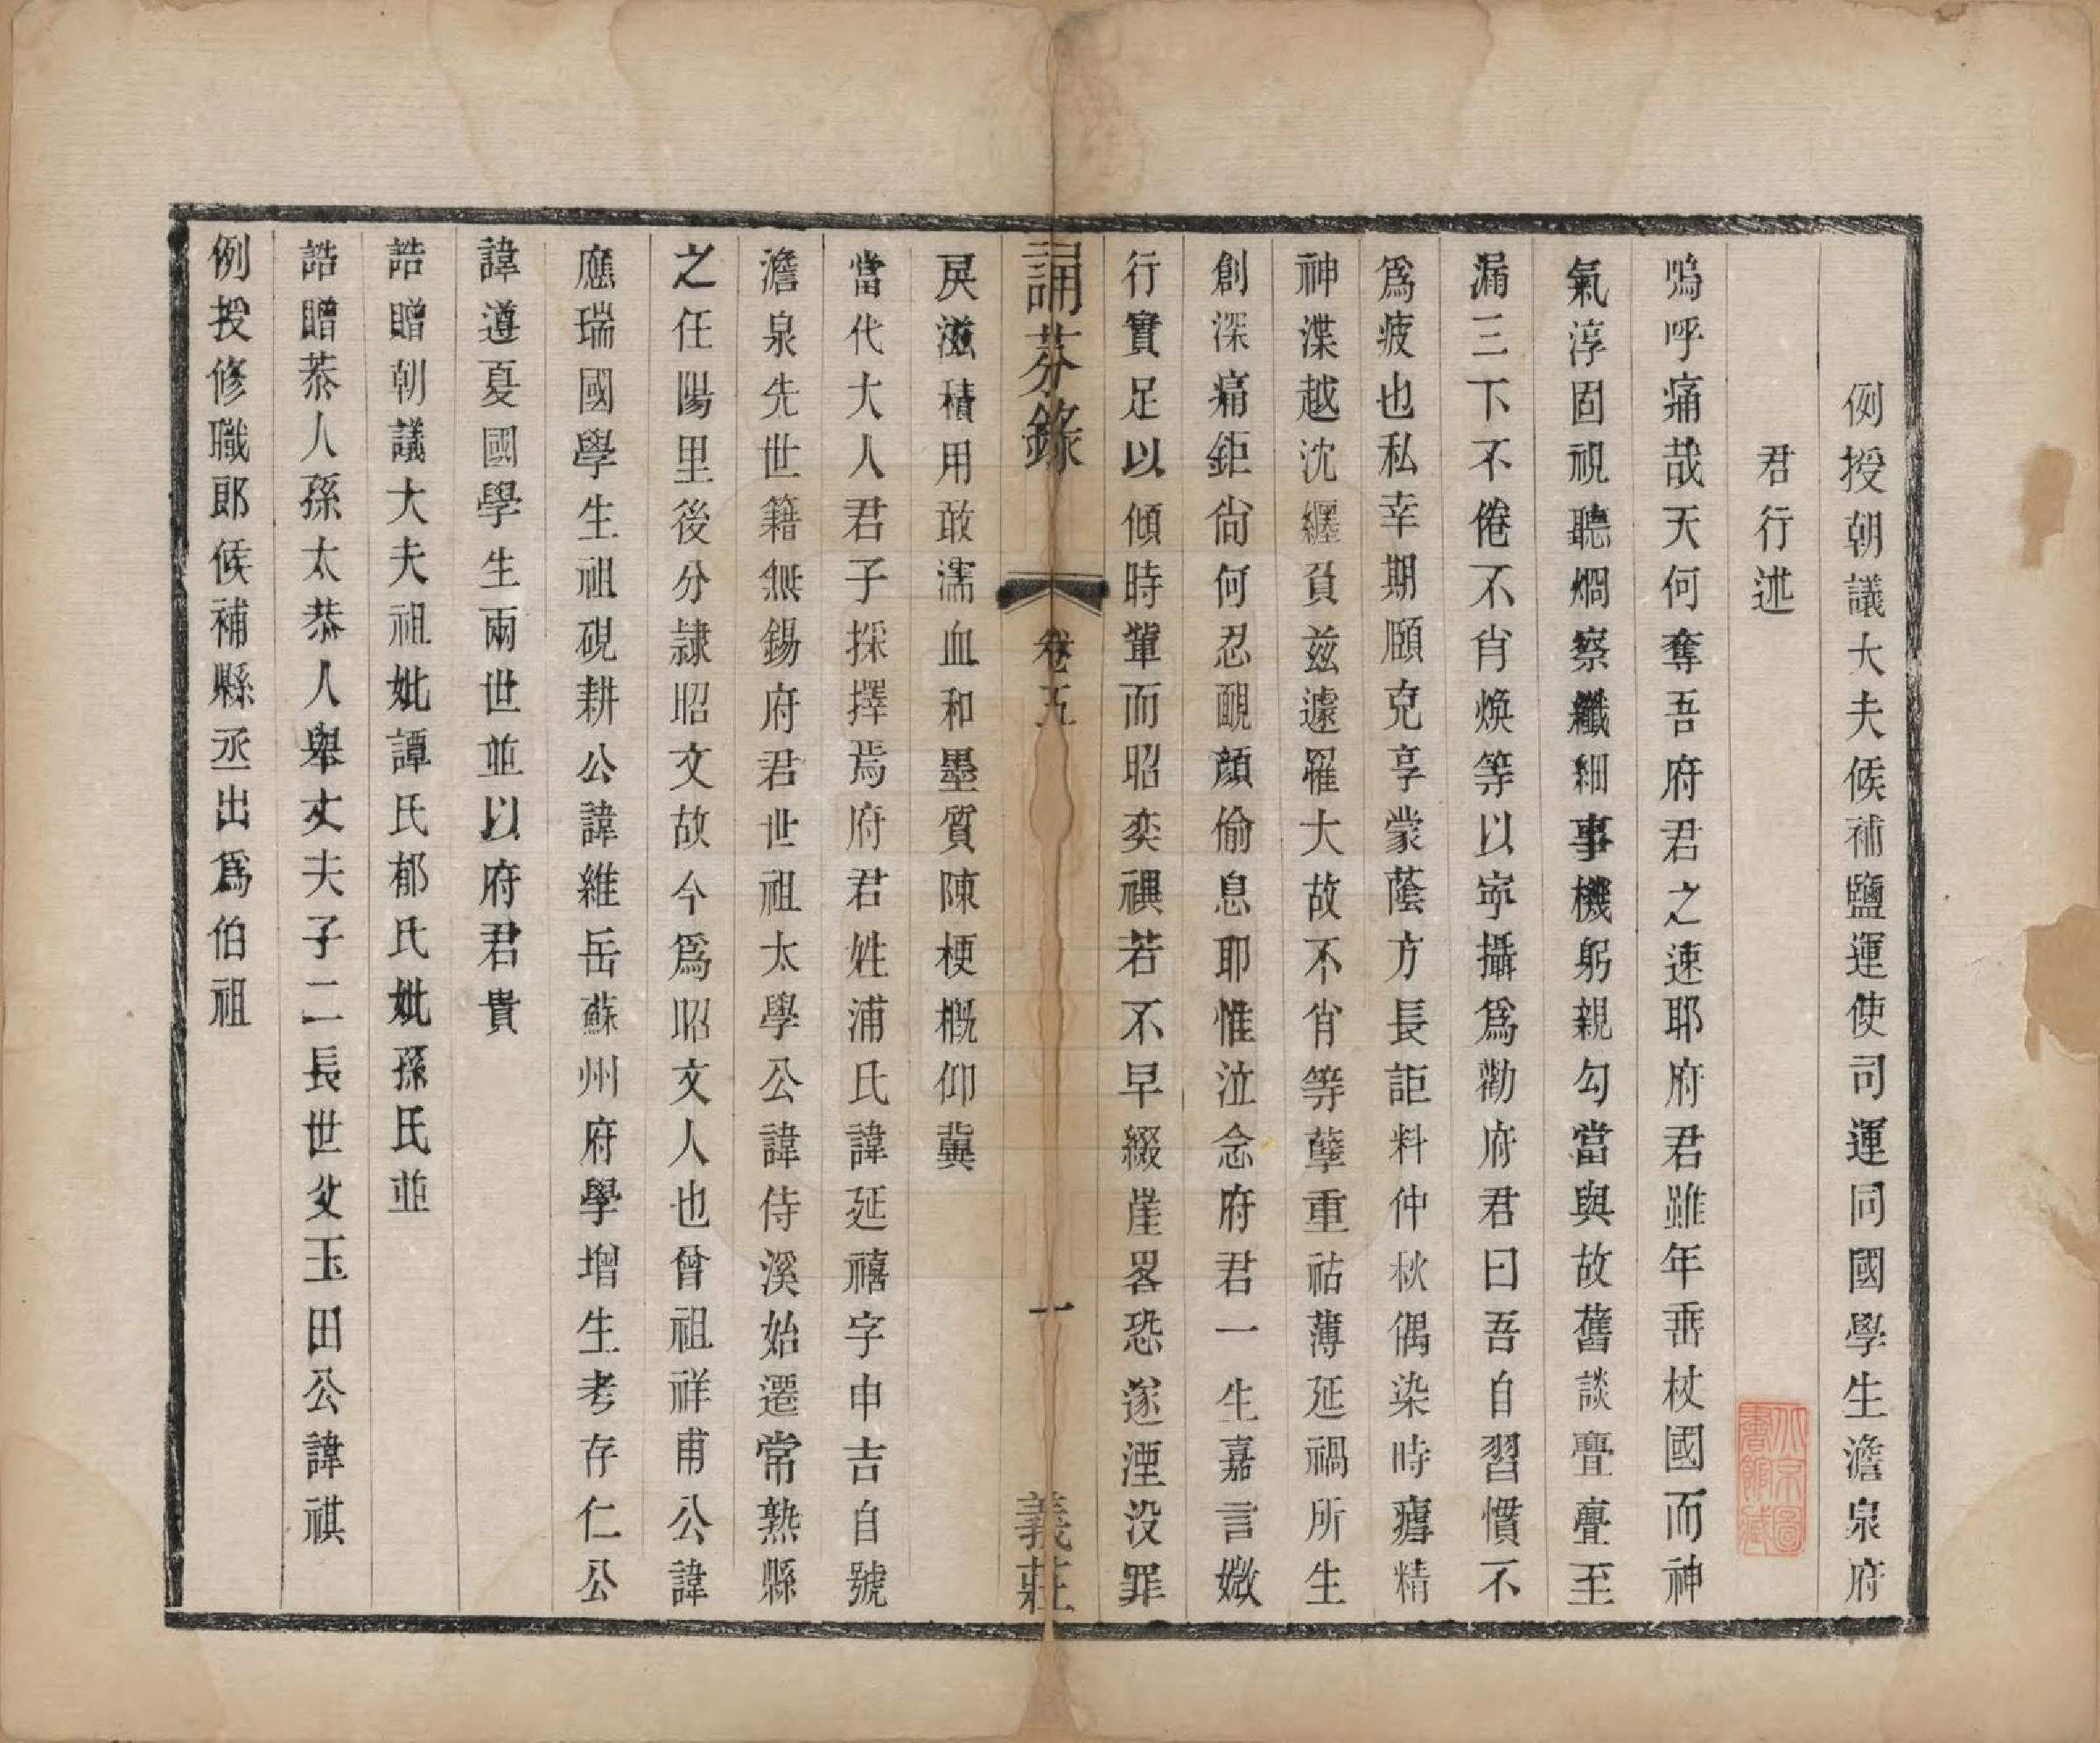 例授朝議大夫候補鹽運使司運同國學生澹泉府
君行述
嗚呼痛哉天何奪吾府君之速耶府君雖年垂杖國而神
氣淳固視聽烱察纖細事機躬親勾當與故舊談亹亹至
漏三下不倦不肖煥等以寕攝爲勸府君曰吾自習慣不
爲疲也私幸期頤克享蒙蔭方長詎料仲秋偶染時癉精
神渫越沈纏負兹遽罹大故不肖等孽重祜薄延禍所生
創深痛鉅尙何忍靦顔偷息耶惟泣念府君一生嘉言媺
行實足以傾時軰而昭奕禩若不早綴崖畧恐遂湮没罪
誦芬錄 卷五 一 義莊
戾滋積用敢濡血和墨質陳梗概仰冀
當代大人君子採擇焉府君姓浦氏諱延禧字申吉自號
澹泉先世籍無錫府君世祖太學公諱侍溪始遷常熟縣
之任陽里後分隷昭文故今爲昭文人也曾祖祥甫公諱
應瑞國學生祖硯耕公諱維岳蘇州府學增生考存仁公
諱遵夏國學生兩世並以府君貴
誥贈朝議大夫祖妣譚氏郁氏妣孫氏並
誥贈恭人孫太恭人舉丈夫子二長世父玉田公諱祺
例授修職郎候補縣丞出爲伯祖